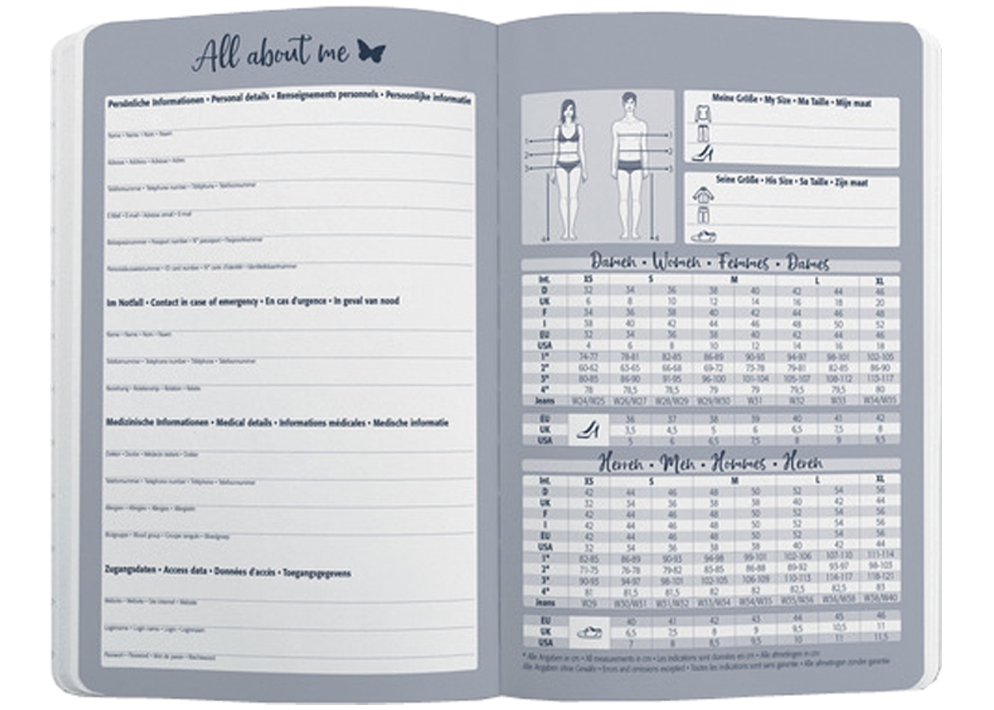 All about me
Persönliche Informationen • Personal details • Renseignements personnels • Persoonlijke informatie
Name • Name • Nom • Naam
Adresse • Address • Adresse • Adres
Telefonnummer • Telephone number • Téléphone • Telefoonnummer
E-Mail • E-mail • Adresse email • E-mail
Reisepassnummer • Passport number • N° passeport • Paspoortnummer
Personalausweisnummer • ID card number • N° carte d'identité • Identiteitskaartnummer
Im Notfall • Contact in case of emergency • En cas d'urgence • In geval van nood
Name • Name • Nom • Naam
Telefonnummer • Telephone number • Téléphone • Telefoonnummer
Beziehung • Relationship • Relation • Relatie
Medizinische Informationen • Medical details • Informations médicales • Medische informatie
Telefonnummer • Telephone number • Téléphone • Telefoonnummer
Allergien • Allergies • Allergies • Allergieën
Blutgruppe • Blood group • Groupe sanguin • Bloedgroep
Zugangsdaten • Access data • Données d'accès • Toegangsgegevens
Website • Website • Site internet • Website
Loginname • Login name • Login • Loginnaam
Passwort • Password • Mot de passe • Wachtwoord
1 1
2 2
3 3
4 4
Meine Größe • My Size • Ma Taille • Mijn maat
Seine Größe • His Size • Sa Taille • Zijn maat
Damen • Women • Femmes • Dames
Int. XS S M L XL
D 32 34 36 38 40 42 44 46
UK 6 8 10 12 14 16 18 20
F 34 36 38 40 42 44 46 48
I 38 40 42 44 46 48 50 52
EU 32 34 36 38 40 42 44 46
USA 4 6 8 10 12 14 16 18
1* 74-77 78-81 82-85 86-89 90-93 94-97 98-101 102-105
2* 60-62 63-65 66-68 69-72 73-78 79-81 82-85 86-90
3* 80-85 86-90 91-95 96-100 101-104 105-107 108-112 113-117
4* 78 78,5 78,5 79 79 79,5 79,5 80
Jeans W24/W25 W26/W27 W28/W29 W29/W30 W31 W32 W33 W34/W35
EU 36 37 38 39 40 41 42
UK 3,5 4,5 5 6 6,5 7,5 8
USA 5 6 6,5 7,5 8 9 9,5
Herren • Men • Hommes • Heren
Int. XS S M L XL
D 42 44 46 48 50 52 54 56
UK 32 34 36 38 38 40 42 44
F 42 44 46 48 50 52 54 56
I 42 44 46 48 50 52 54 56
EU 42 44 46 48 50 52 54 56
USA 32 34 36 38 38 40 42 44
1* 82-85 86-89 90-93 94-98 99-101 102-106 107-110 111-114
2* 71-75 76-78 79-82 83-85 86-88 89-92 93-97 98-103
3* 90-93 94-97 98-101 102-105 106-109 110-113 114-117 118-121
4* 81 81,5 81,5 82 82 82,5 82,5 83
Jeans W29 W30/W31 W31/W32 W33/W34 W34/W35 W35/W36 W36/W38 W38/W40
EU 40 41 42 43 44 45 46
UK 6,5 7,5 8 9 9,5 10,5 11
USA 7 8 8,5 9,5 10 11 11,5
* Alle Angaben in cm • All measurements in cm • Les indications sont données en cm • Alle afmetingen in cm
Alle Angaben ohne Gewähr • Errors and omissions excepted • Toutes les indications sont sans garantie • Alle afmetingen zonder garantie